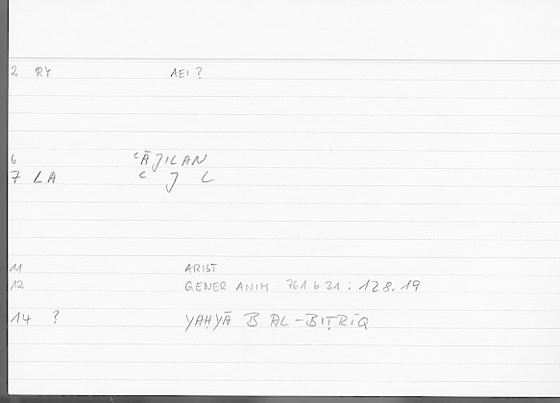 2 RY AEI ?
6 ʿĀJILAN
7 LA ʿ J L
11 ARIST
12 GENER ANIM 761b31 : 128.19
14 ? YAḤYĀ B AL-BIṬRĪQ